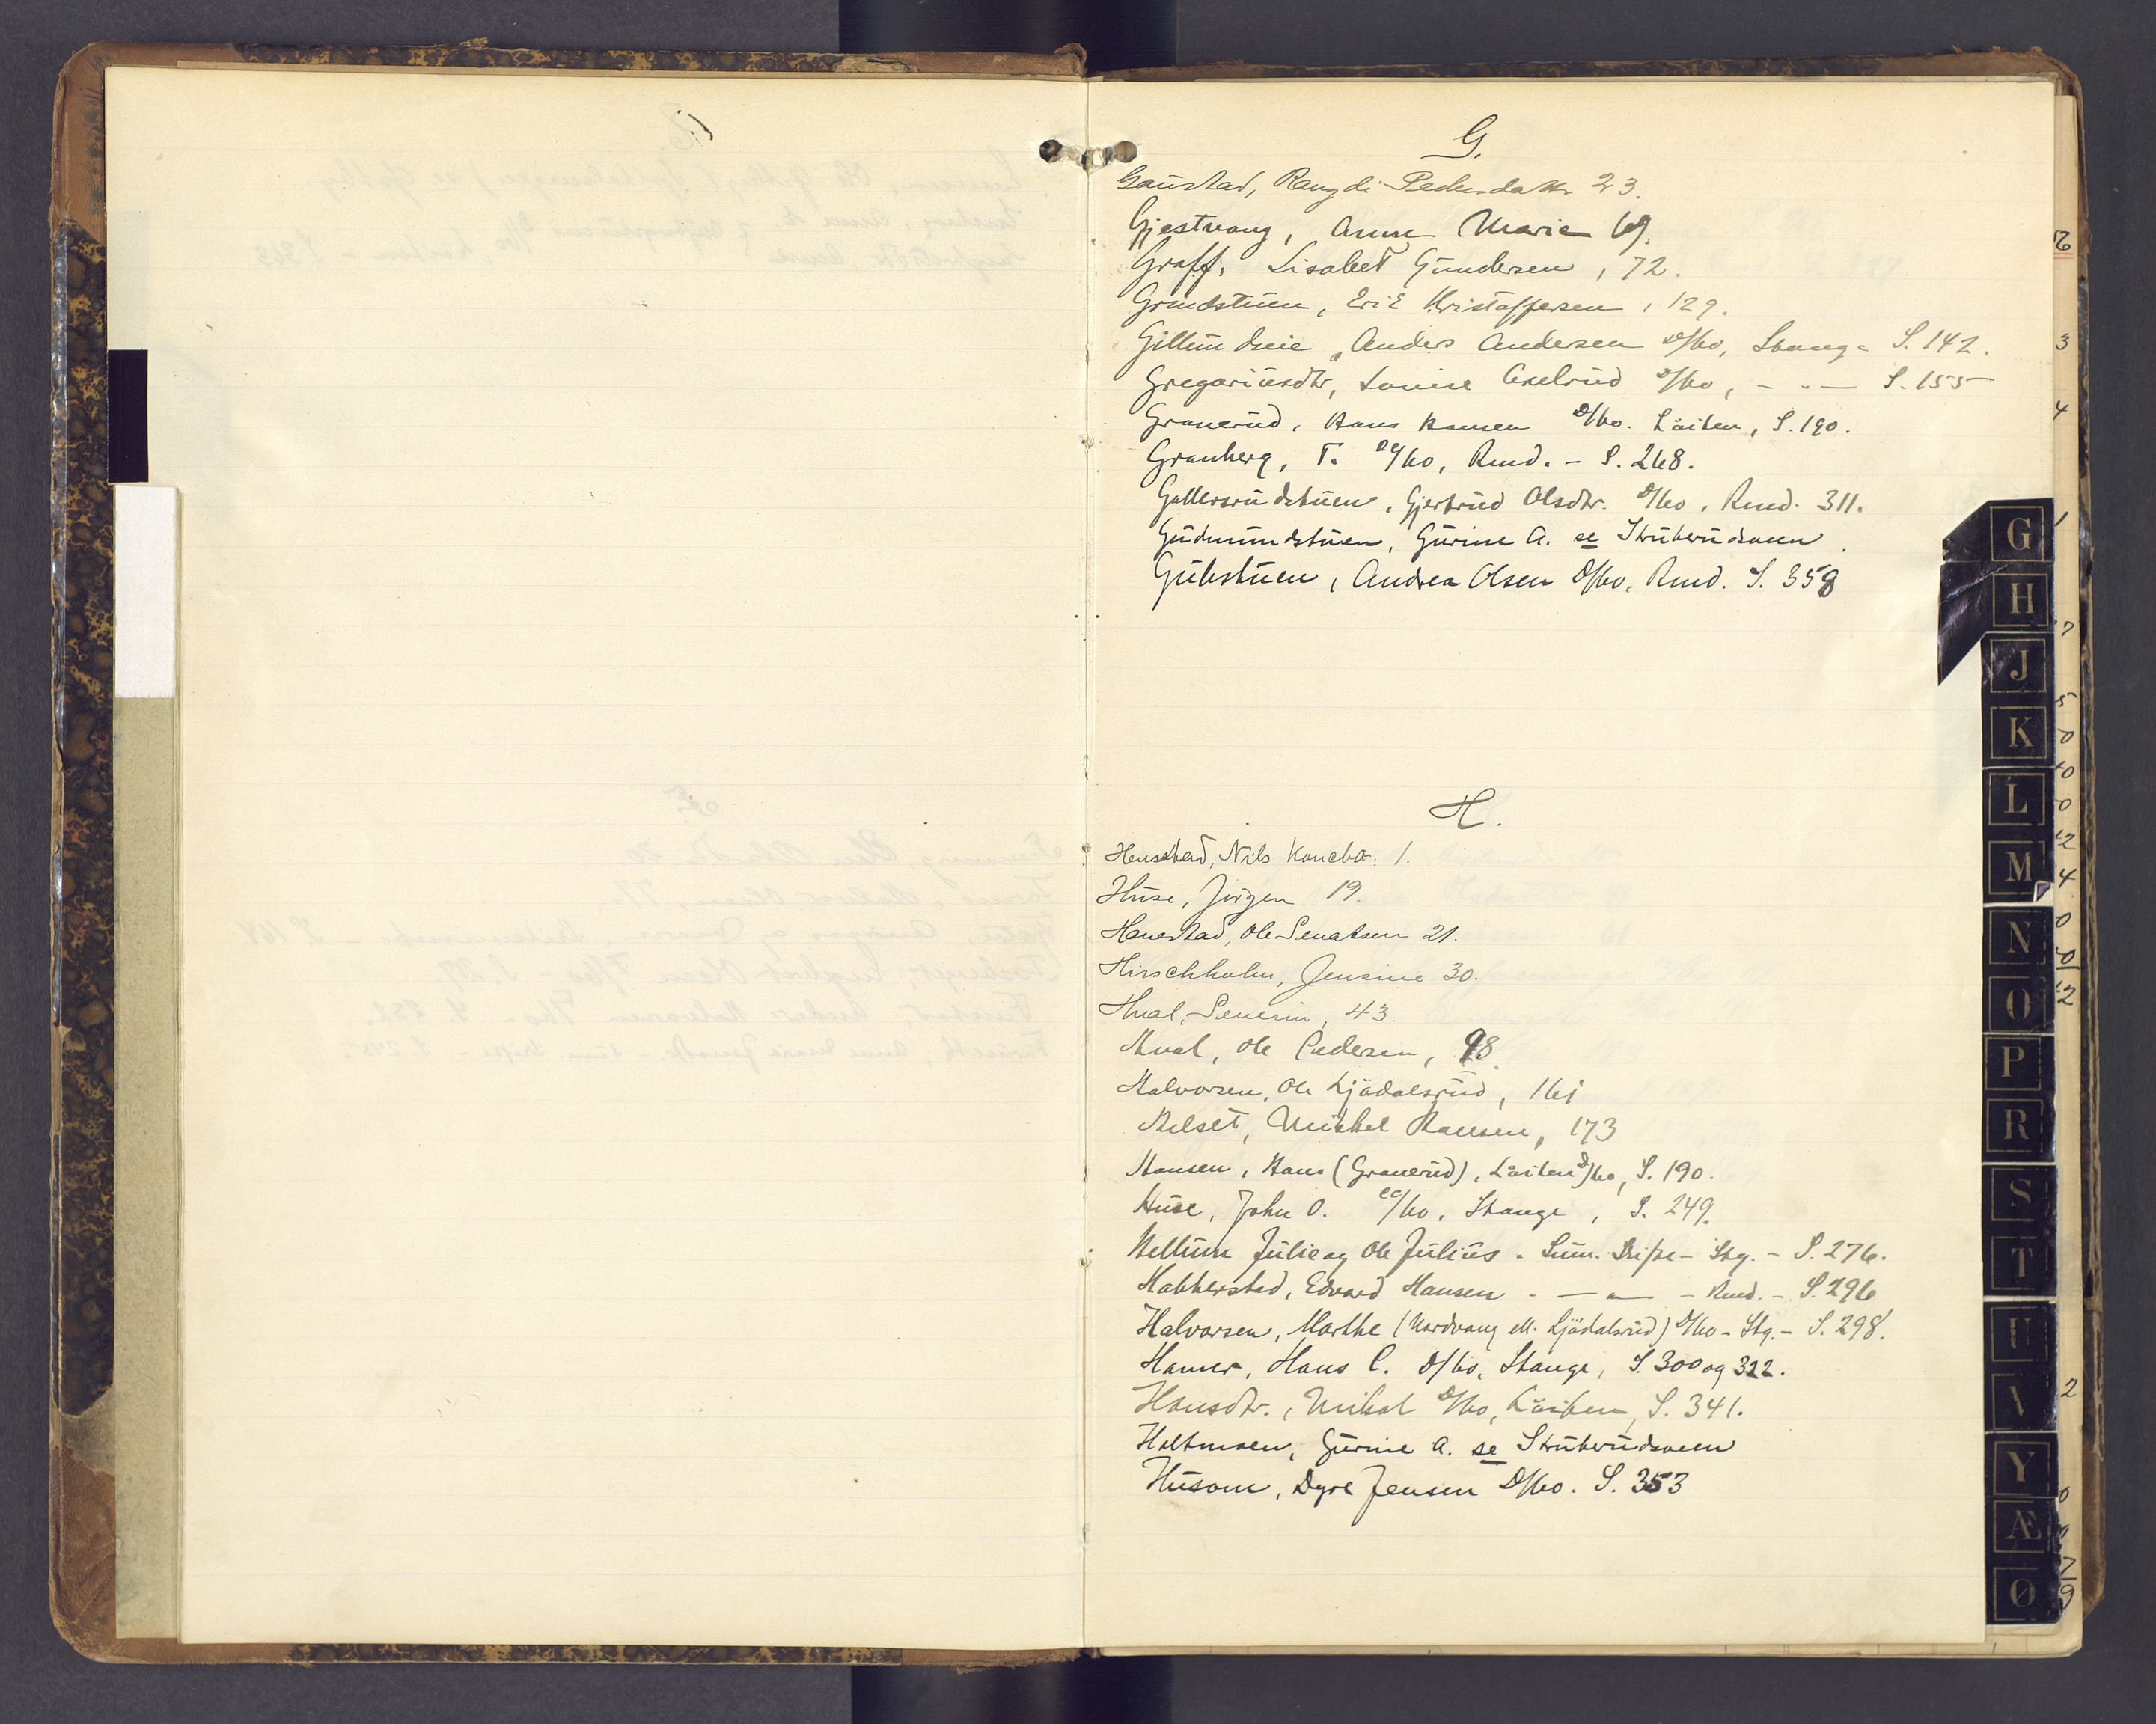 G.
Gaustad, Rangdi Pedersdatter 23.
Gjestvang, Anne Marie
Graff, Lisabet Gundersen, 72.
Grundstuen, Erik Kristoffersen, 129.
Gillund eie, Anders Andersen D/bo, Stange S. 142.
Gregariusdtr, Louise Axelrud D/bo, - " - S. 155
Granerud, Hans Hansen D/bo. Löiten, S. 190.
Granberg, T. ea/bo, Rmd. - S. 268.
Gjertrud Olsdtr. D/bo, Rmd. 311.
Gudmundstuen, Gurine A. se Struberudsveen
Gubstuen, Andrea Olsen D/bo, Rmd. S. 358
H.
Nils 1.
Huse, Jörgen 19.
Hanestad, Ole 21.
Hirschholm, Jensine 30.
Hval, Severin, 43.
Hval, Ole Pedersen, 98
Halvorsen, Ole Ljödalsrud, 161
Helset, Mikkel Hansen, 173
Hansen, Hans (Granerud), Löiten D/bo, S. 190.
Huse, John O. ea/bo, Stange, S. 249.
Hellum Julie og Ole Julius. Sum. Skifte - Stg. - S. 276.
Habberstad, Edvard Hansen - — " — - Rmd. - S. 296
Halvorsen, Marthe (Nordvang ell. Ljödalsrud) D/bo - Stg. - S. 298.
Hamer, Hans C. D/bo, Stange, S. 300 og 322.
Hansdtr., Mikal D/bo, Löiten, S. 341.
Holtmoen, Gurine A. se Struberudsveen
Husom, Dyre Jensen D/bo. S. 353
G
H
J
K
L
M
N
O
P
R
S
T
U
V
Y
Æ
Ø